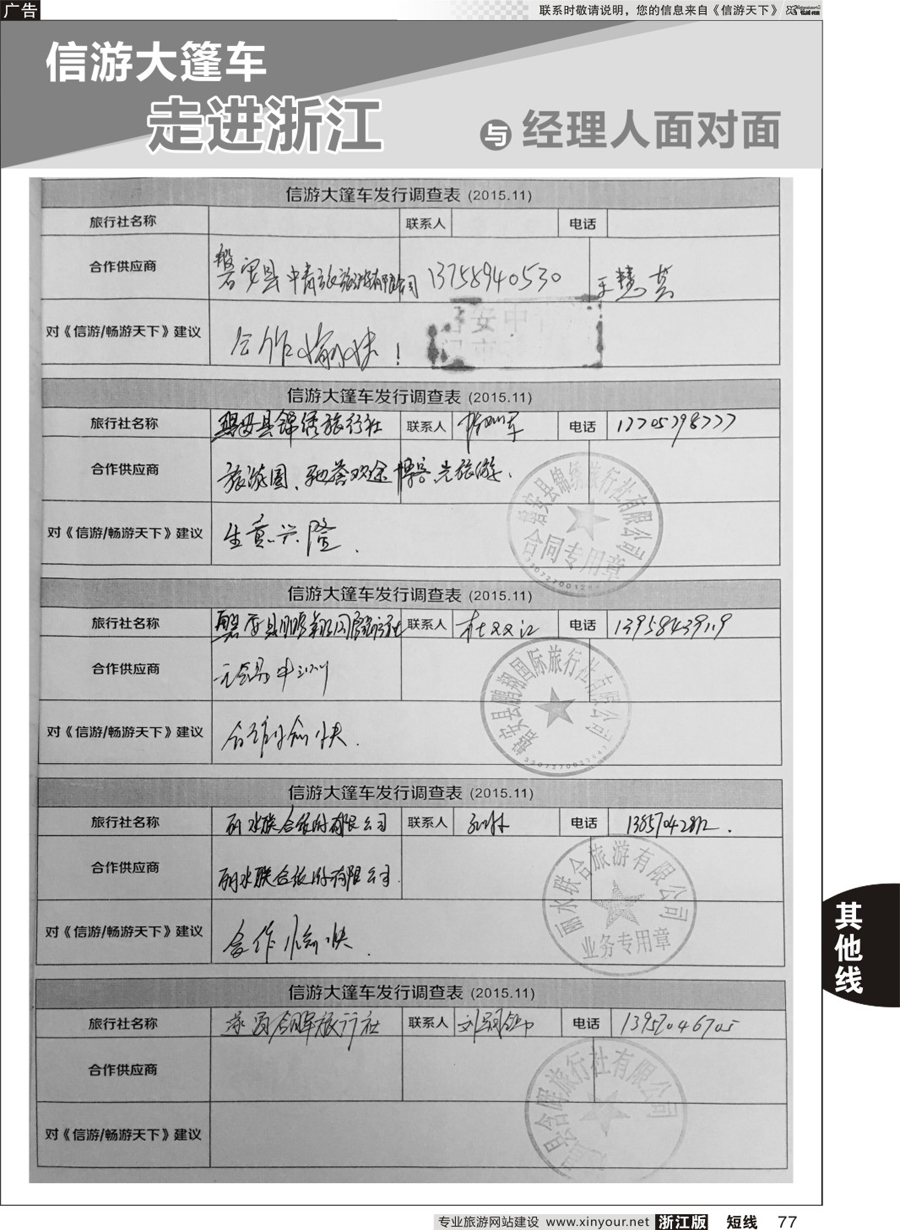 广告
联系时敬请说明，您的信息来自《信游天下》
信游大篷车
走进浙江
与 经理人面对面
信游大篷车发行调查表 (2015.11)
旅行社名称 联系人 电话
合作供应商 磐安县中青旅旅游有限公司 13758940530 王慧英
对《信游/畅游天下》建议 合作愉快！
信游大篷车发行调查表 (2015.11)
旅行社名称 磐安县锦绣旅行社 联系人 电话 17705798777
合作供应商 旅游圈、
对《信游/畅游天下》建议 生意兴隆.
磐安县锦绣旅行社有限公司
合同专用章
信游大篷车发行调查表 (2015.11)
旅行社名称 磐安县鹏翔国际旅行社 联系人 杜双江 电话 13958439119
合作供应商
对《信游/畅游天下》建议 合作愉快.
磐安县鹏翔国际旅行社有限公司
信游大篷车发行调查表 (2015.11)
旅行社名称 丽水联合旅游有限公司 联系人 电话
合作供应商 丽水联合旅游有限公司.
对《信游/畅游天下》建议 合作愉快.
丽水联合旅游有限公司
业务专用章
信游大篷车发行调查表 (2015.11)
旅行社名称 旅行社 联系人 电话 13957046705
合作供应商
对《信游/畅游天下》建议
旅行社有限公司
其他线
专业旅游网站建设 www.xinyour.net 浙江版 短线 77